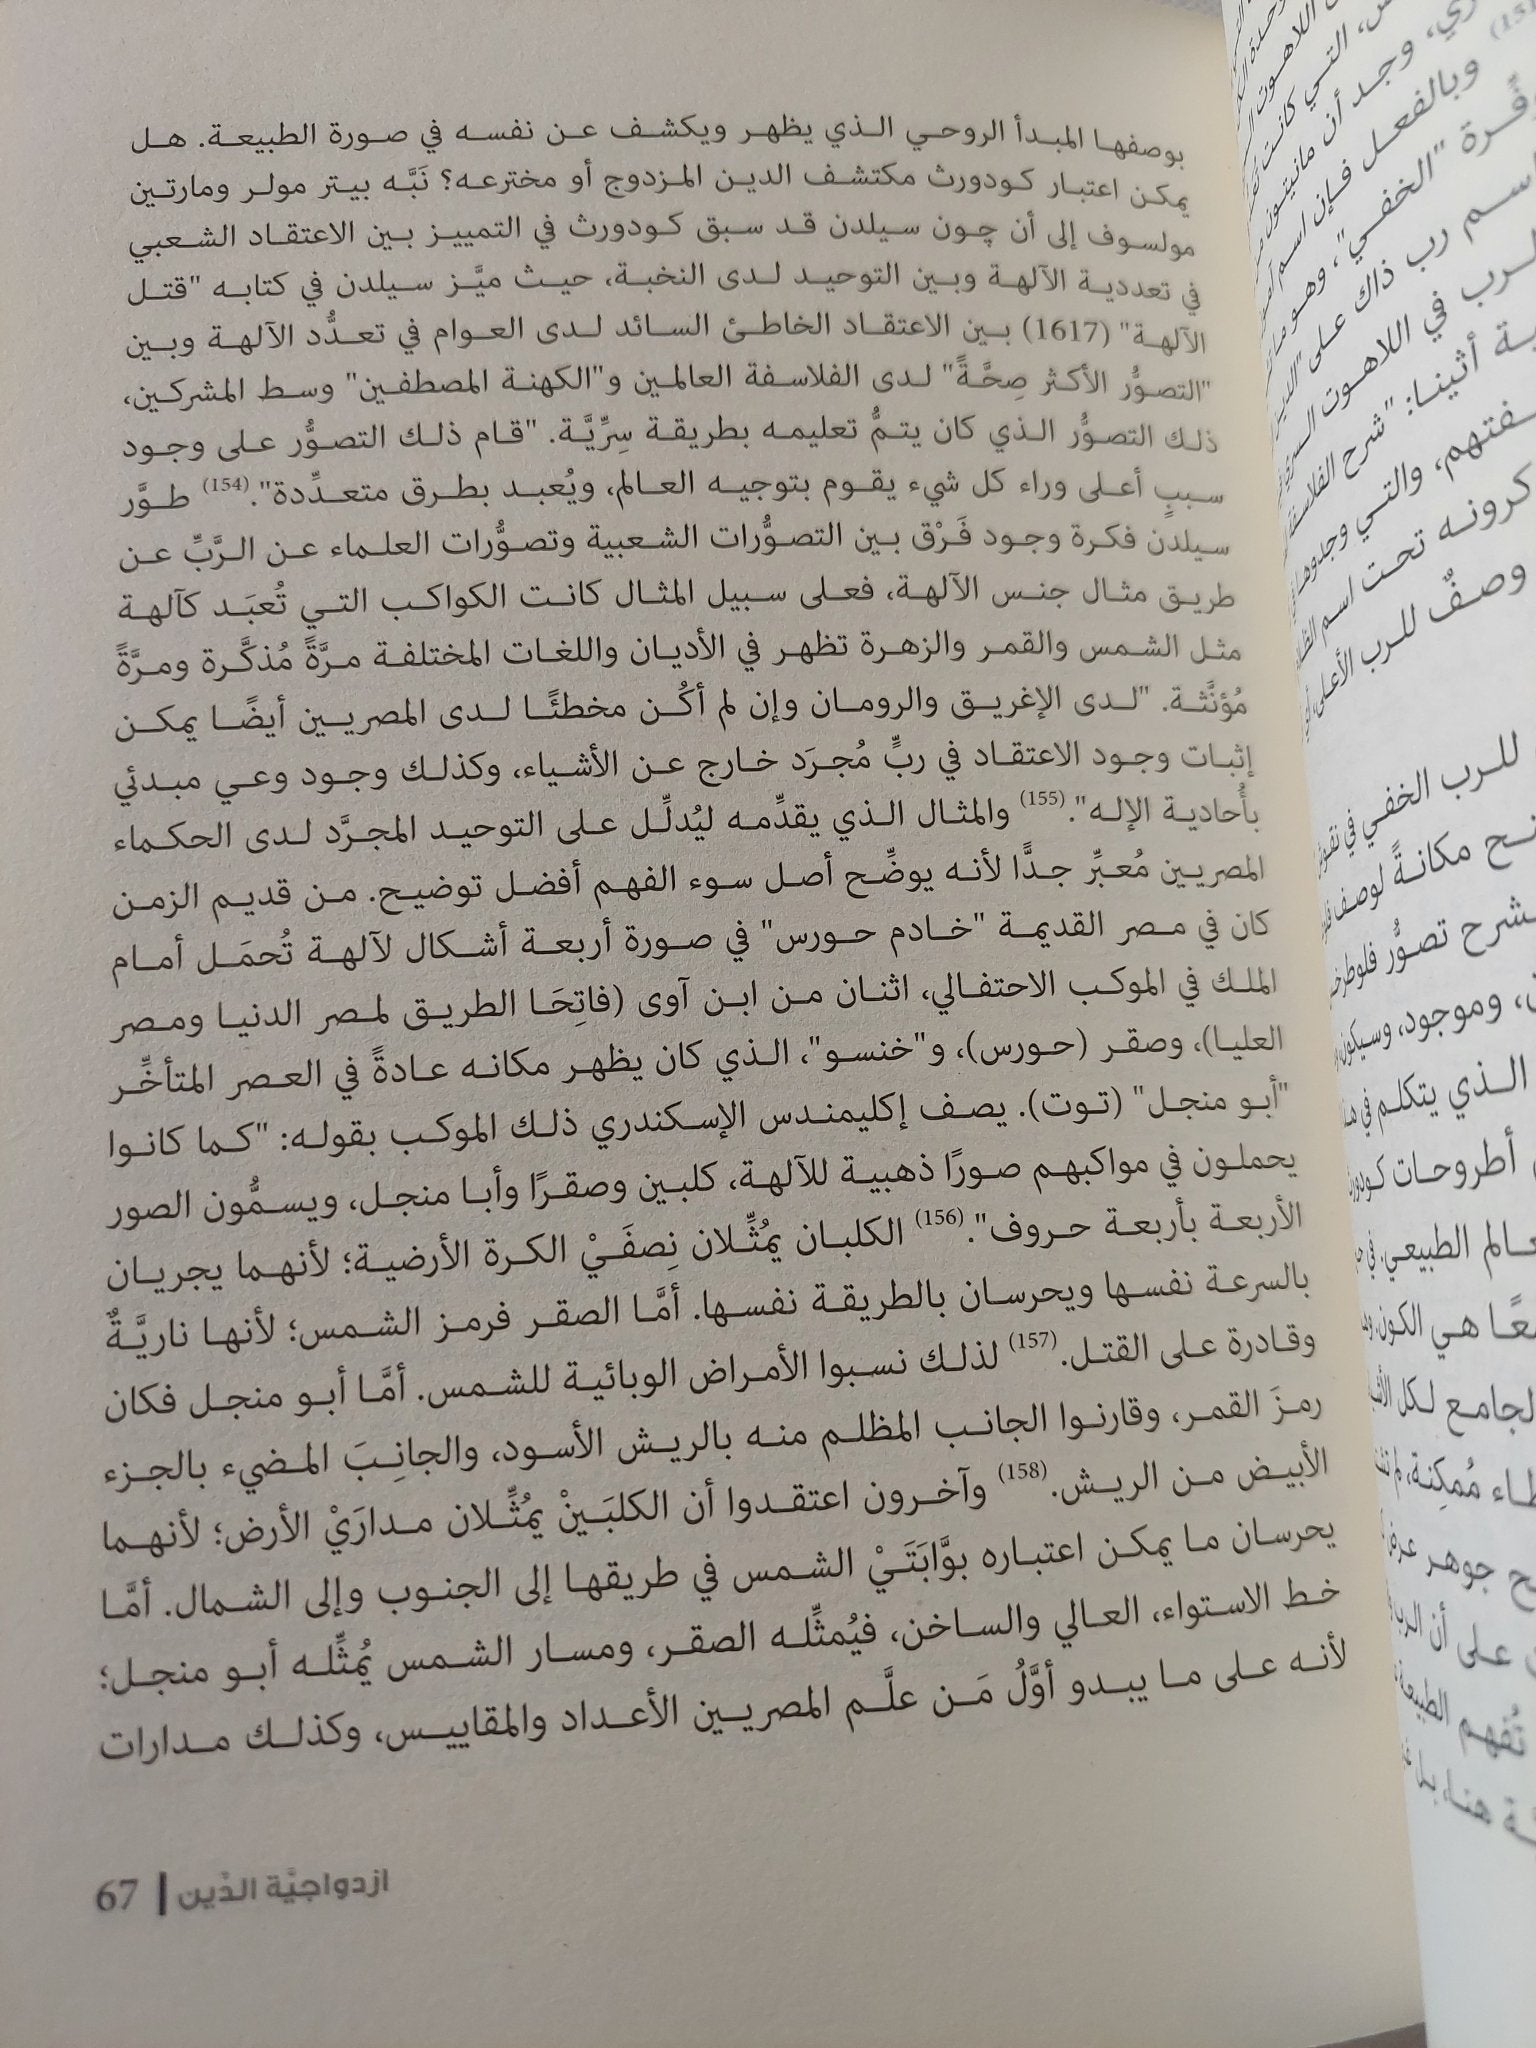 بوصفها المبدأ الروحي الذي يظهر ويكشف عن نفسه في صورة الطبيعة. هل
يمكن اعتبار كودورث مكتشف الدين المزدوج أو مخترعه؟ نَبَّه بيتر مولر ومارتين
مولسوف إلى أن چون سيلدن قد سبق كودورث في التمييز بين الاعتقاد الشعبي
في تعددية الآلهة وبين التوحيد لدى النخبة، حيث ميَّز سيلدن في كتابه "قتل
الآلهة" (1617) بين الاعتقاد الخاطئ السائد لدى العوام في تعدُّد الآلهة وبين
"التصوُّر الأكثر صِحَّةً" لدى الفلاسفة العالمين و"الكهنة المصطفين" وسط المشركين،
ذلك التصوُّر الذي كان يتمُّ تعليمه بطريقة سِرِّيَّة. "قام ذلك التصوُّر على وجود
سببٍ أعلى وراء كل شيء يقوم بتوجيه العالم، ويُعبد بطرق متعدِّدة".(154) طوَّر
سيلدن فكرة وجود فَرْق بين التصوُّرات الشعبية وتصوُّرات العلماء عن الرَّبِّ عن
طريق مثال جنس الآلهة، فعلى سبيل المثال كانت الكواكب التي تُعبَد كآلهة
مثل الشمس والقمر والزهرة تظهر في الأديان واللغات المختلفة مرَّةً مُذكَّرة ومرَّةً
مُؤنَّثة. "لدى الإغريق والرومان وإن لم أكُن مخطئًا لدى المصريين أيضًا يمكن
إثبات وجود الاعتقاد في ربٍّ مُجرَد خارج عن الأشياء، وكذلك وجود وعي مبدئي
بأُحادية الإله".(155) والمثال الذي يقدِّمه ليُدلِّل على التوحيد المجرَّد لدى الحكماء
المصريين مُعبِّر جدًّا لأنه يوضِّح أصل سوء الفهم أفضل توضيح. من قديم الزمن
كان في مصر القديمة "خادم حورس" في صورة أربعة أشكال لآلهة تُحمَل أمام
الملك في الموكب الاحتفالي، اثنان من ابن آوى (فاتِحَا الطريق لمصر الدنيا ومصر
العليا)، وصقر (حورس)، و"خنسو"، الذي كان يظهر مكانه عادةً في العصر المتأخِّر
"أبو منجل" (توت). يصف إكليمندس الإسكندري ذلك الموكب بقوله: "كما كانوا
يحملون في مواكبهم صورًا ذهبية للآلهة، كلبين وصقرًا وأبا منجل، ويسمُّون الصور
الأربعة بأربعة حروف".(156) الكلبان يمُثِّلان نِصفَيْ الكرة الأرضية؛ لأنهما يجريان
بالسرعة نفسها ويحرسان بالطريقة نفسها. أمَّا الصقر فرمز الشمس؛ لأنها ناريَّةٌ
وقادرة على القتل.(157) لذلك نسبوا الأمراض الوبائية للشمس. أمَّا أبو منجل فكان
رمزَ القمر، وقارنوا الجانب المظلم منه بالريش الأسود، والجانِبَ المضيء بالجزء
الأبيض من الريش.(158) وآخرون اعتقدوا أن الكلبَينْ يمُثِّلان مدارَيْ الأرض؛ لأنهما
يحرسان ما يمكن اعتباره بوَّابَتَيْ الشمس في طريقها إلى الجنوب وإلى الشمال. أمَّا
خط الاستواء، العالي والساخن، فيُمثِّله الصقر، ومسار الشمس يُمثِّله أبو منجل؛
لأنه على ما يبدو أوَّلُ مَن علَّم المصريين الأعداد والمقاييس، وكذلك مدارات
ازدواجيَّة الدِّين | 67